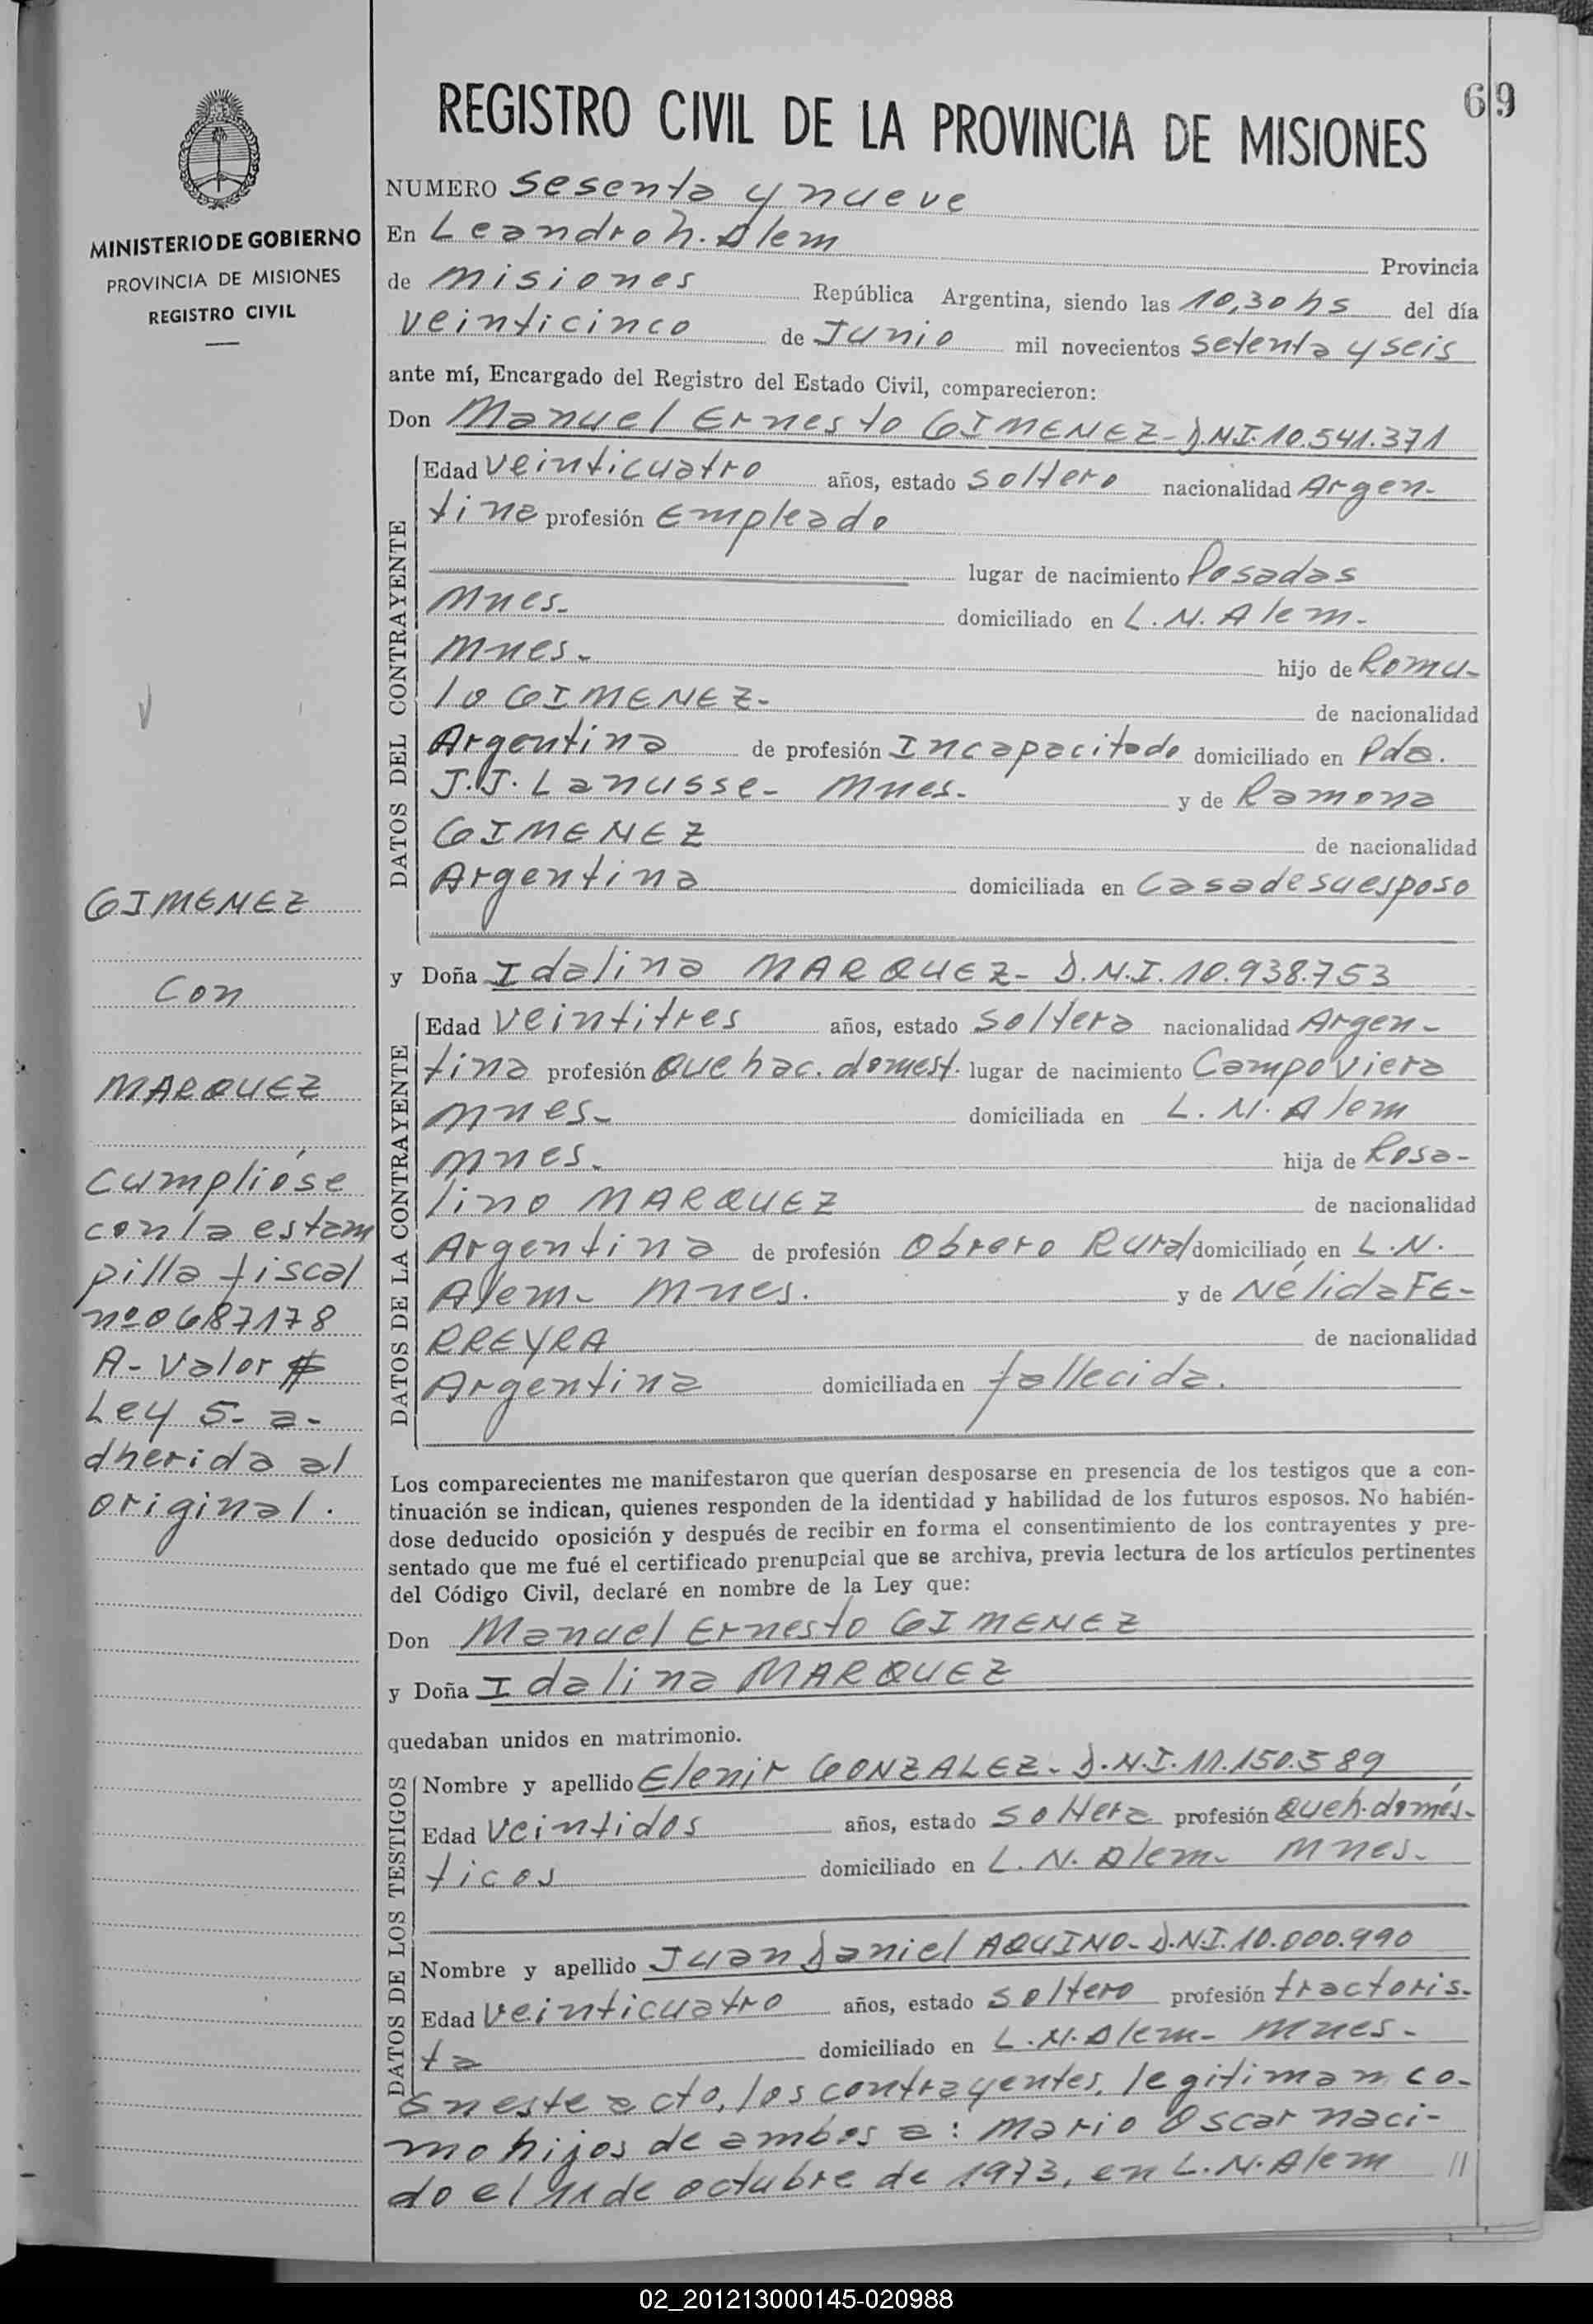 69
REGISTRO CIVIL DE LA PROVINCIA DE MISIONES
MINISTERIO DE GOBIERNO
PROVINCIA DE MISIONES
REGISTRO CIVIL
NUMERO Sesenta y nueve
En Leandro N. Alem Provincia
de Misiones República Argentina, siendo las 10,30 hs del día
veinticinco de Junio mil novecientos setenta y seis
ante mí, Encargado del Registro del Estado Civil, comparecieron:
Don Manuel Ernesto GIMENEZ- D.N.I.10.541.371
DATOS DEL CONTRAYENTE
Edad veinticuatro años, estado soltero nacionalidad Argen-
tina profesión Empleado
lugar de nacimiento Posadas
Mnes- domiciliado en L.N. Alem-
Mnes- hijo de Romu-
lo GIMENEZ- de nacionalidad
Argentina de profesión Incapacitado domiciliado en Pda.
J.J. Lanusse- Mnes- y de Ramona
GIMENEZ de nacionalidad
Argentina domiciliada en Casa de su esposo
y Doña Idalina MARQUEZ- D.N.I.10.938.753
DATOS DE LA CONTRAYENTE
Edad veintitres años, estado soltera nacionalidad Argen-
tina profesión Quehac. domest. lugar de nacimiento Campo Viera
Mnes- domiciliada en L.N. Alem
Mnes- hija de Rosa-
lino MARQUEZ de nacionalidad
Argentina de profesión Obrero Rural domiciliado en L.N.
Alem- Mnes. y de Nélida FE-
RREYRA de nacionalidad
Argentina domiciliada en fallecida.
Los comparecientes me manifestaron que querían desposarse en presencia de los testigos que a con-
tinuación se indican, quienes responden de la identidad y habilidad de los futuros esposos. No habién-
dose deducido oposición y después de recibir en forma el consentimiento de los contrayentes y pre-
sentado que me fué el certificado prenupcial que se archiva, previa lectura de los artículos pertinentes
del Código Civil, declaré en nombre de la Ley que:
Don Manuel Ernesto GIMENEZ
y Doña Idalina MARQUEZ
quedaban unidos en matrimonio.
DATOS DE LOS TESTIGOS
Nombre y apellido Elenir GONZALEZ- D.N.I.11.150.589
Edad veintidos años, estado soltera profesión Queh. domés-
ticos domiciliado en L.N. Alem- Mnes-
Nombre y apellido Juan Daniel AQUINO- D.N.I.10.000.990
Edad veinticuatro años, estado soltero profesión tractoris-
ta domiciliado en L.N. Alem- Mnes-
En este acto, los contrayentes, legitiman co-
mo hijos de ambos a: Mario Oscar naci-
do el 11 de octubre de 1973, en L.N. Alem //
GIMENEZ
con
MARQUEZ
cumplióse
con la estam
pilla fiscal
nº 0687178
A- valor $
Ley 5- a-
dherida al
original.
02_201213000145-020988